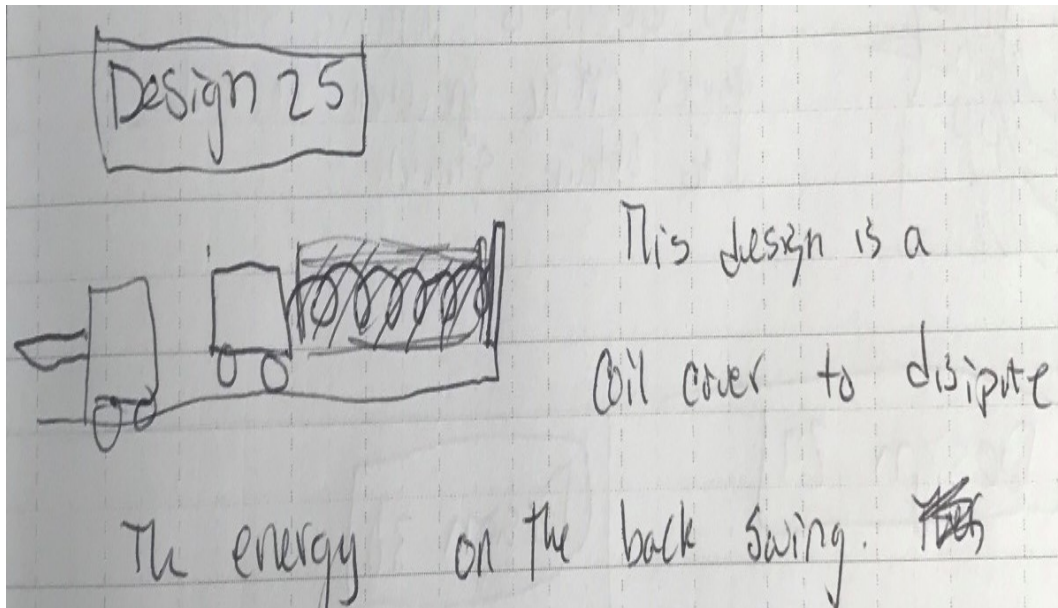 Design 25
This design is a
coil cover to disipate
The energy on the back swing.